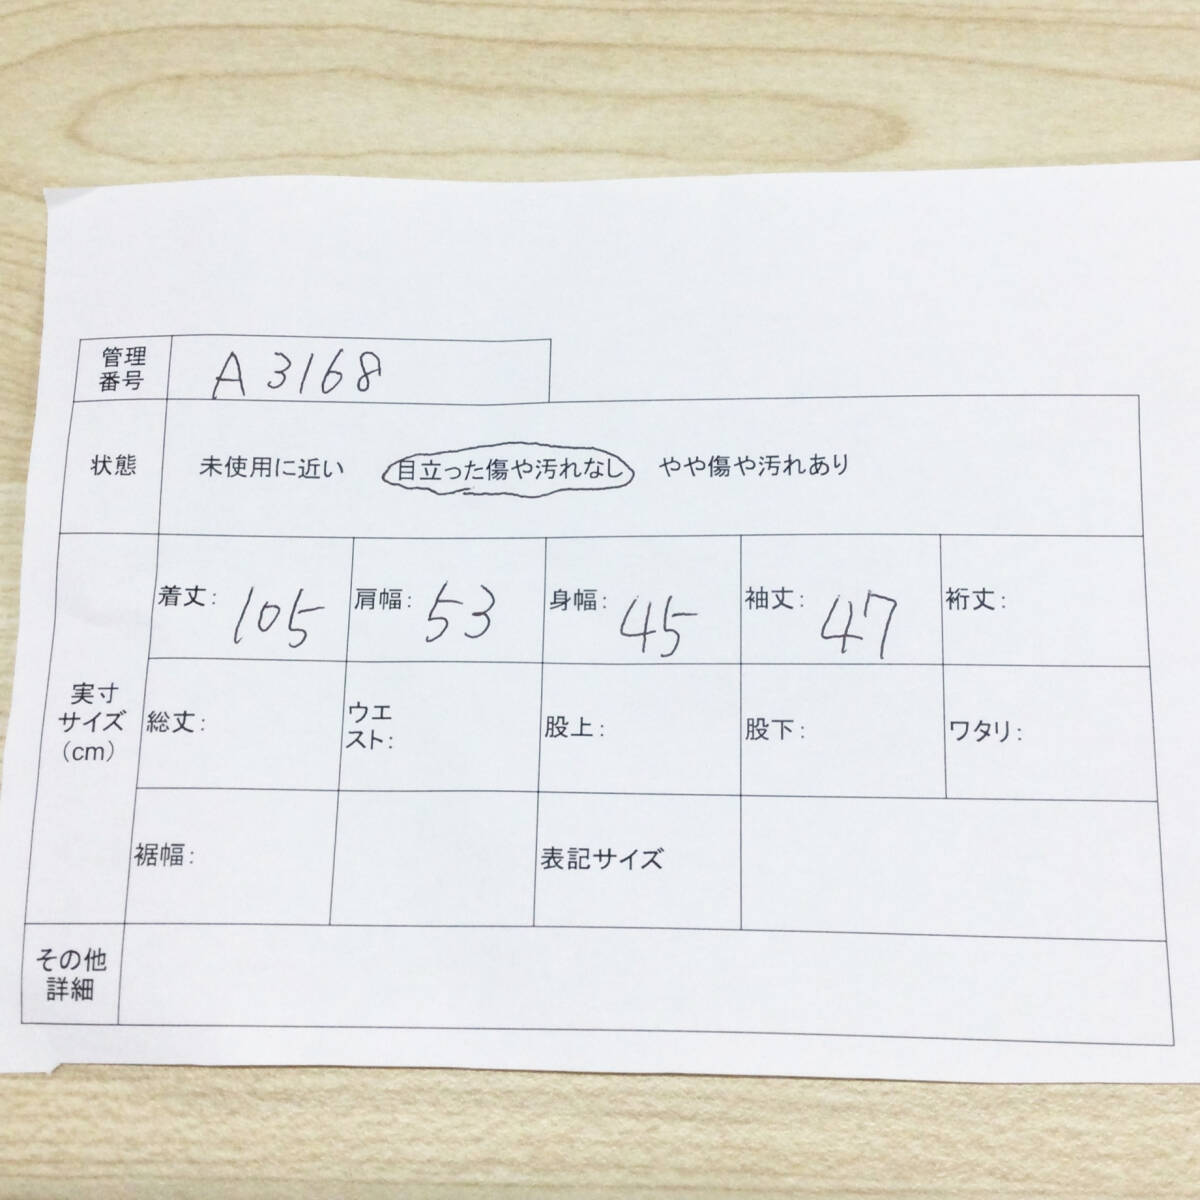 管理
番号
A3168
状態
未使用に近い 目立った傷や汚れなし やや傷や汚れあり
実寸
サイズ
(cm)
着丈: 105 肩幅: 53 身幅: 45 袖丈: 47 裄丈:
総丈: ウエ
スト: 股上: 股下: ワタリ:
裾幅: 表記サイズ
その他
詳細